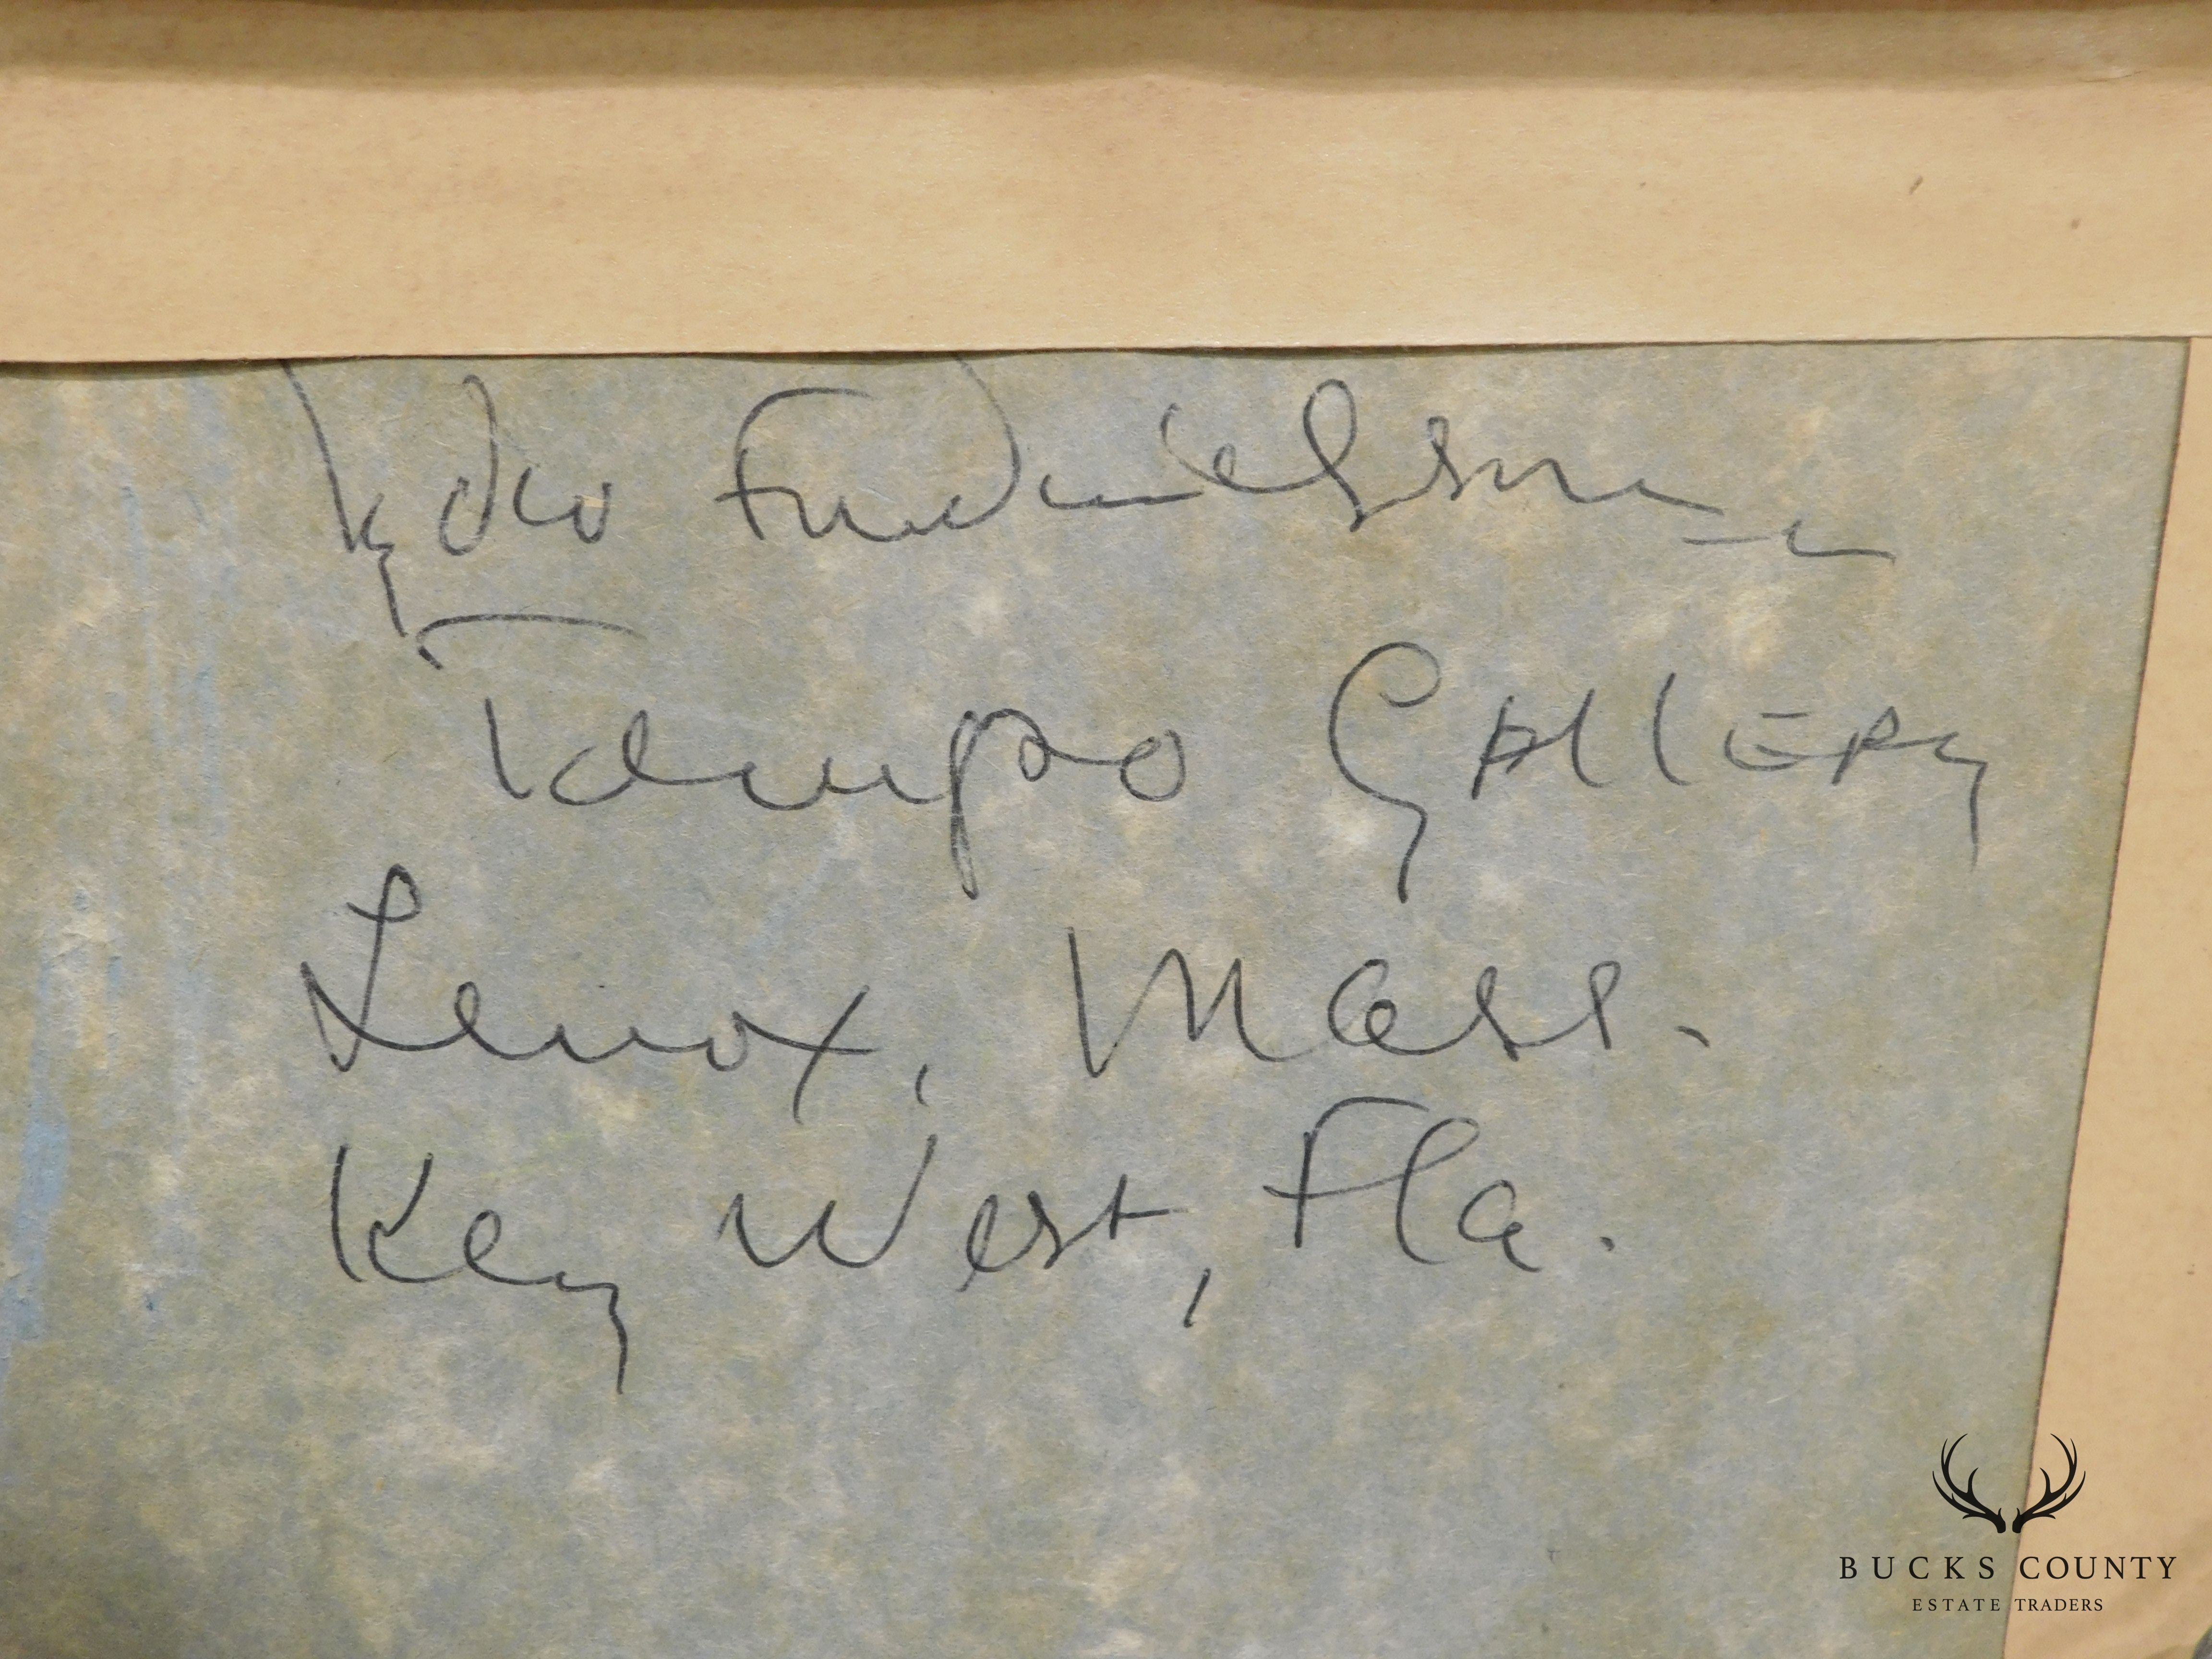 Tempo GALLERy
Lenox, Mass.
Key West, Fla.
BUCKS COUNTY
ESTATE TRADERS